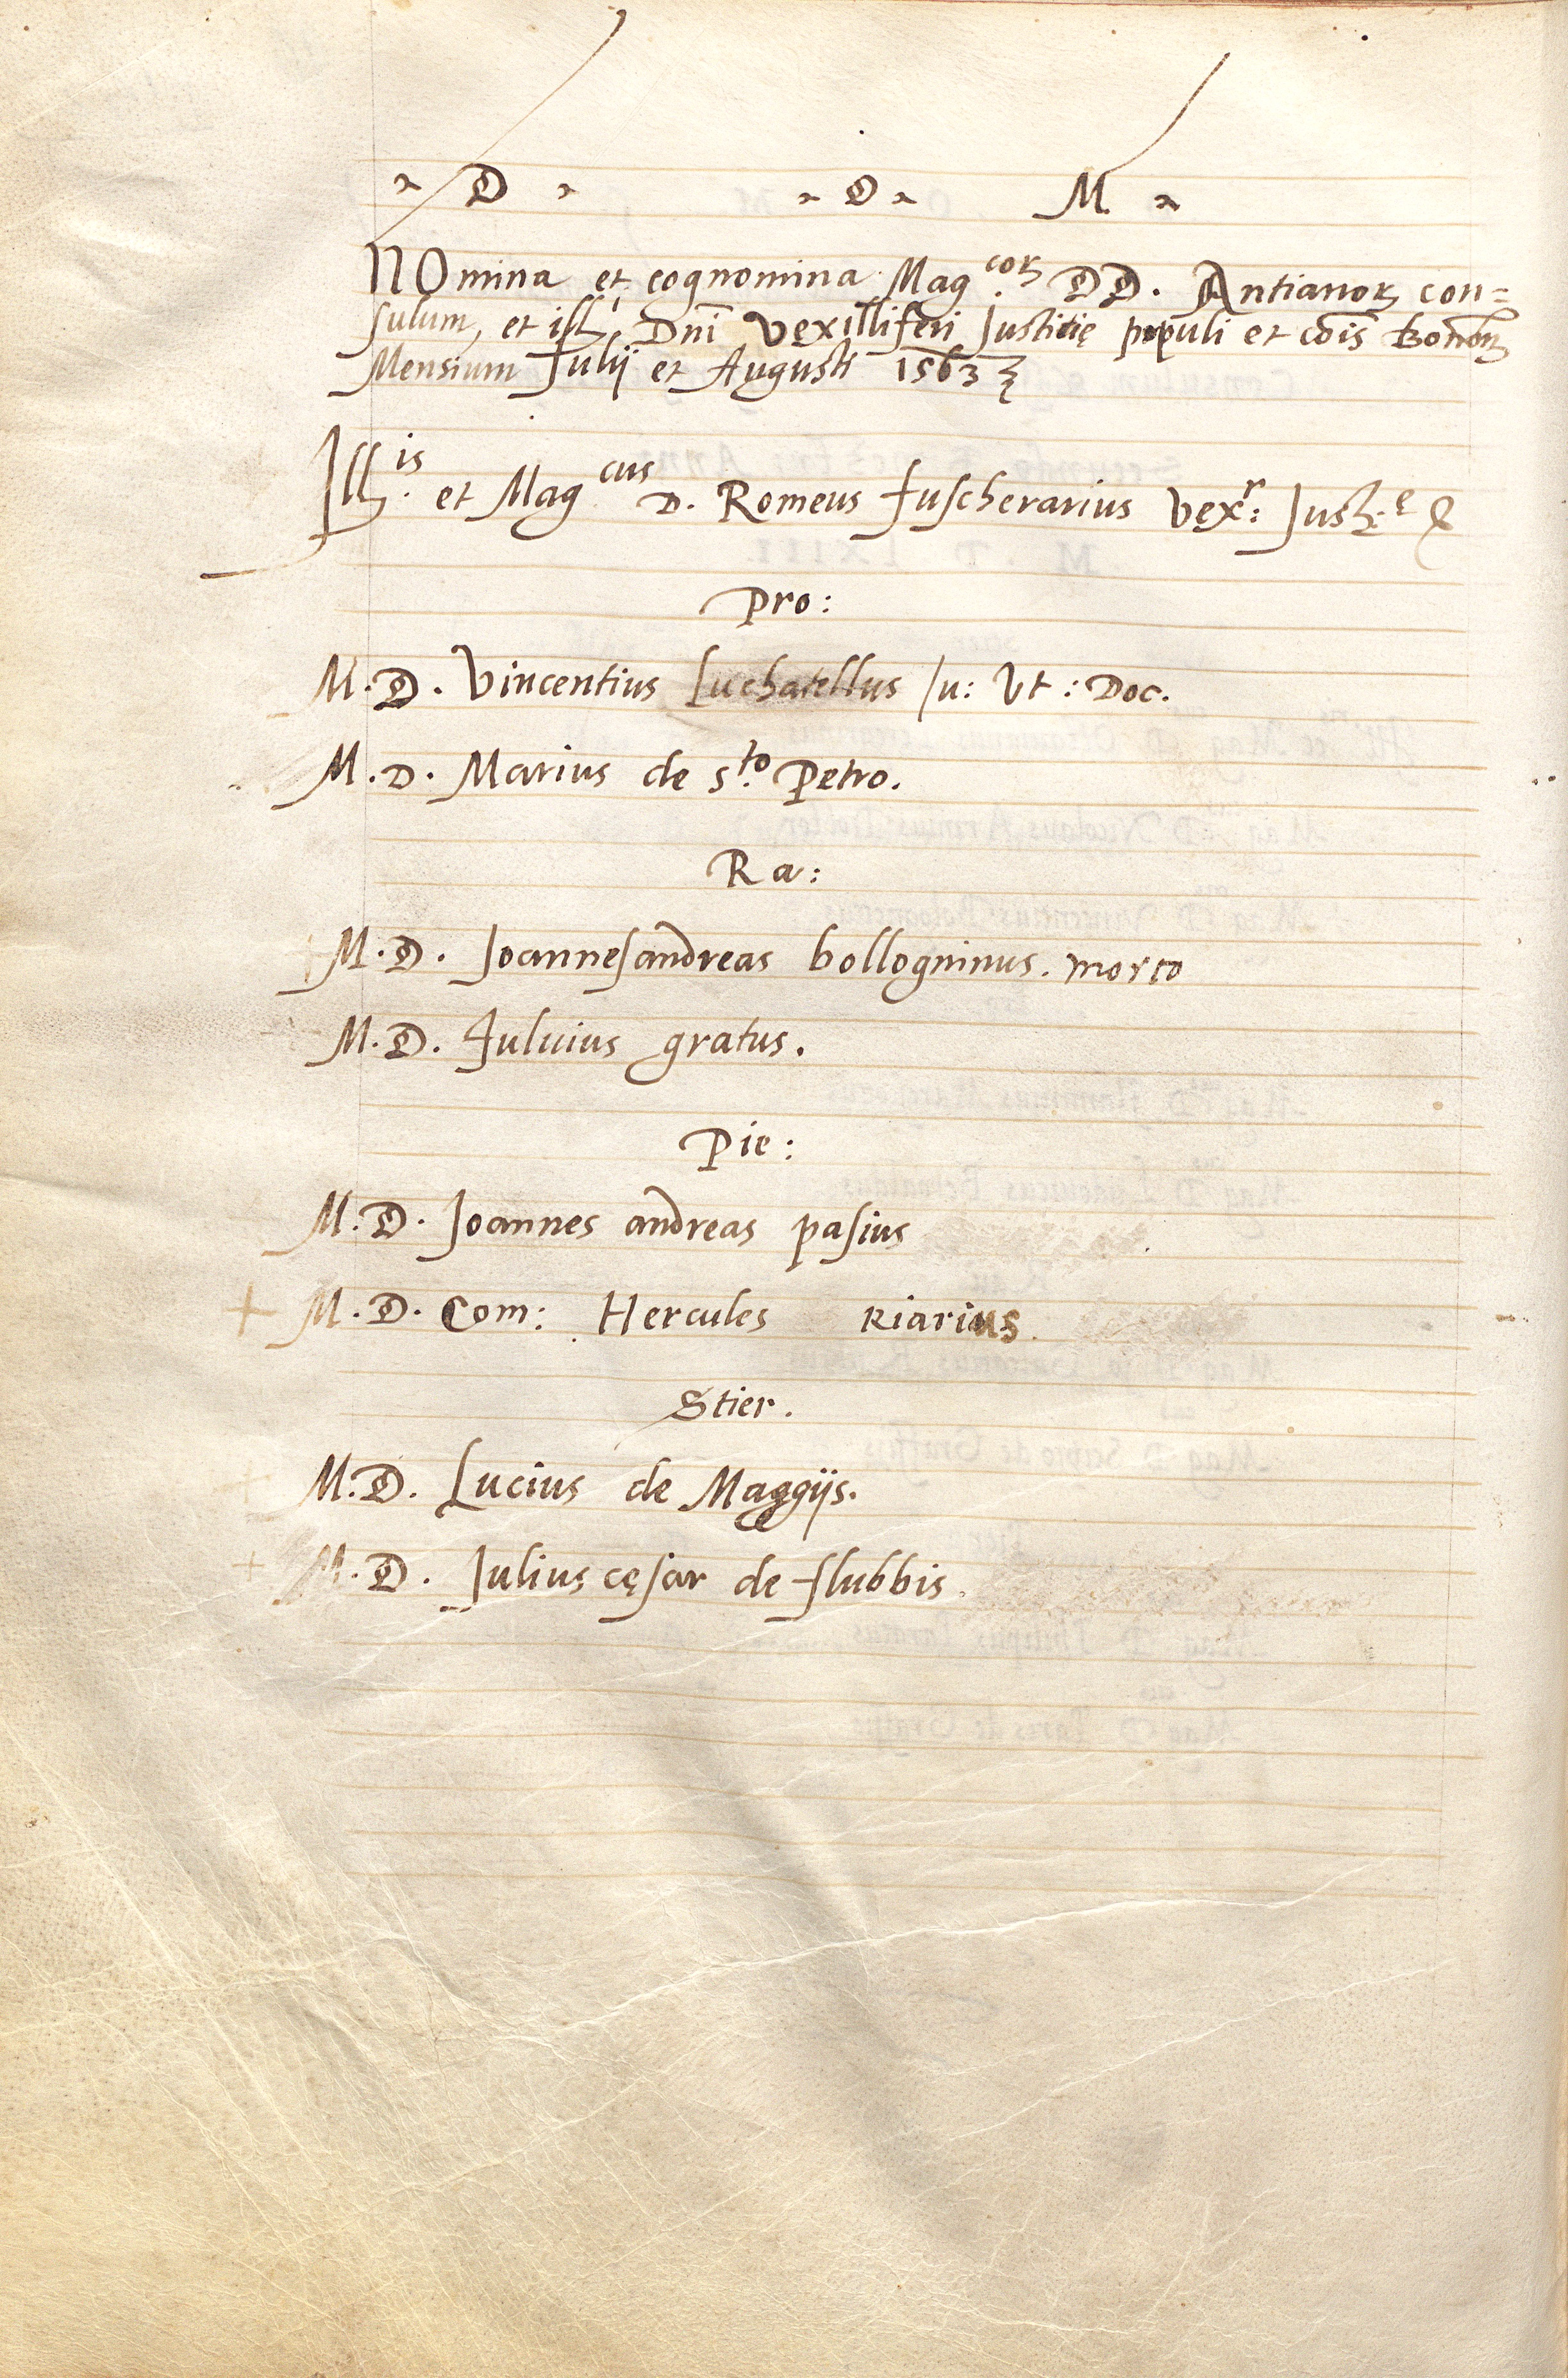 D D M
NOmina et cognomina Mag.cor DD. Antianor con=
sulum, et ill. Dni Vexilliferi Justitię populi et cois Bonon
Mensium Julij et Augusti 1563
Ill.is et Mag.cus D. Romeus fuscherarius Vex.r: Just.ę &
Pro:
M. D. Vincentius Luchatellus Ju: Vt: Doc.
M. D. Marius de S.to Petro.
Ra:
+ M. D. Joannesandreas bollogninus. morto
M. D. fuluius gratus.
Pie:
M. D. Joannes andreas pasius
+ M. D. Com: Hercules Riarius
Stier.
+ M. D. Lucius de Maggijs.
+ M. D. Julius cęsar de flubbis.